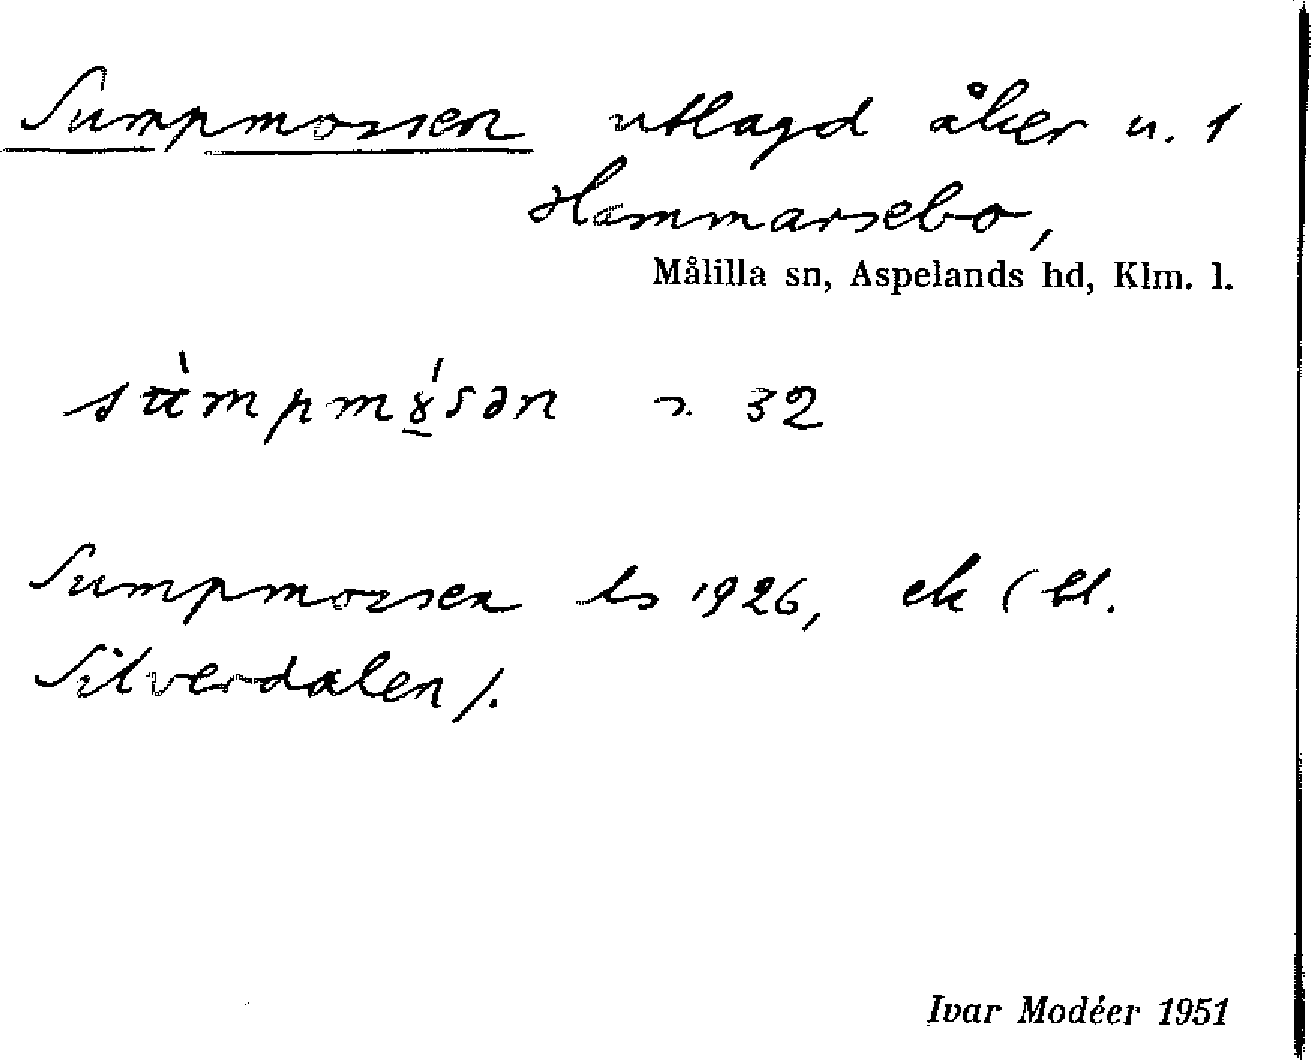 Sumpmossen utlagd åker u. 1
Hammarsebo,
Målilla sn, Aspelands hd, Klm. l.
32
Sumpmossen ls 1926, ek (bl.
Silverdalen).
Ivar Modéer 1951